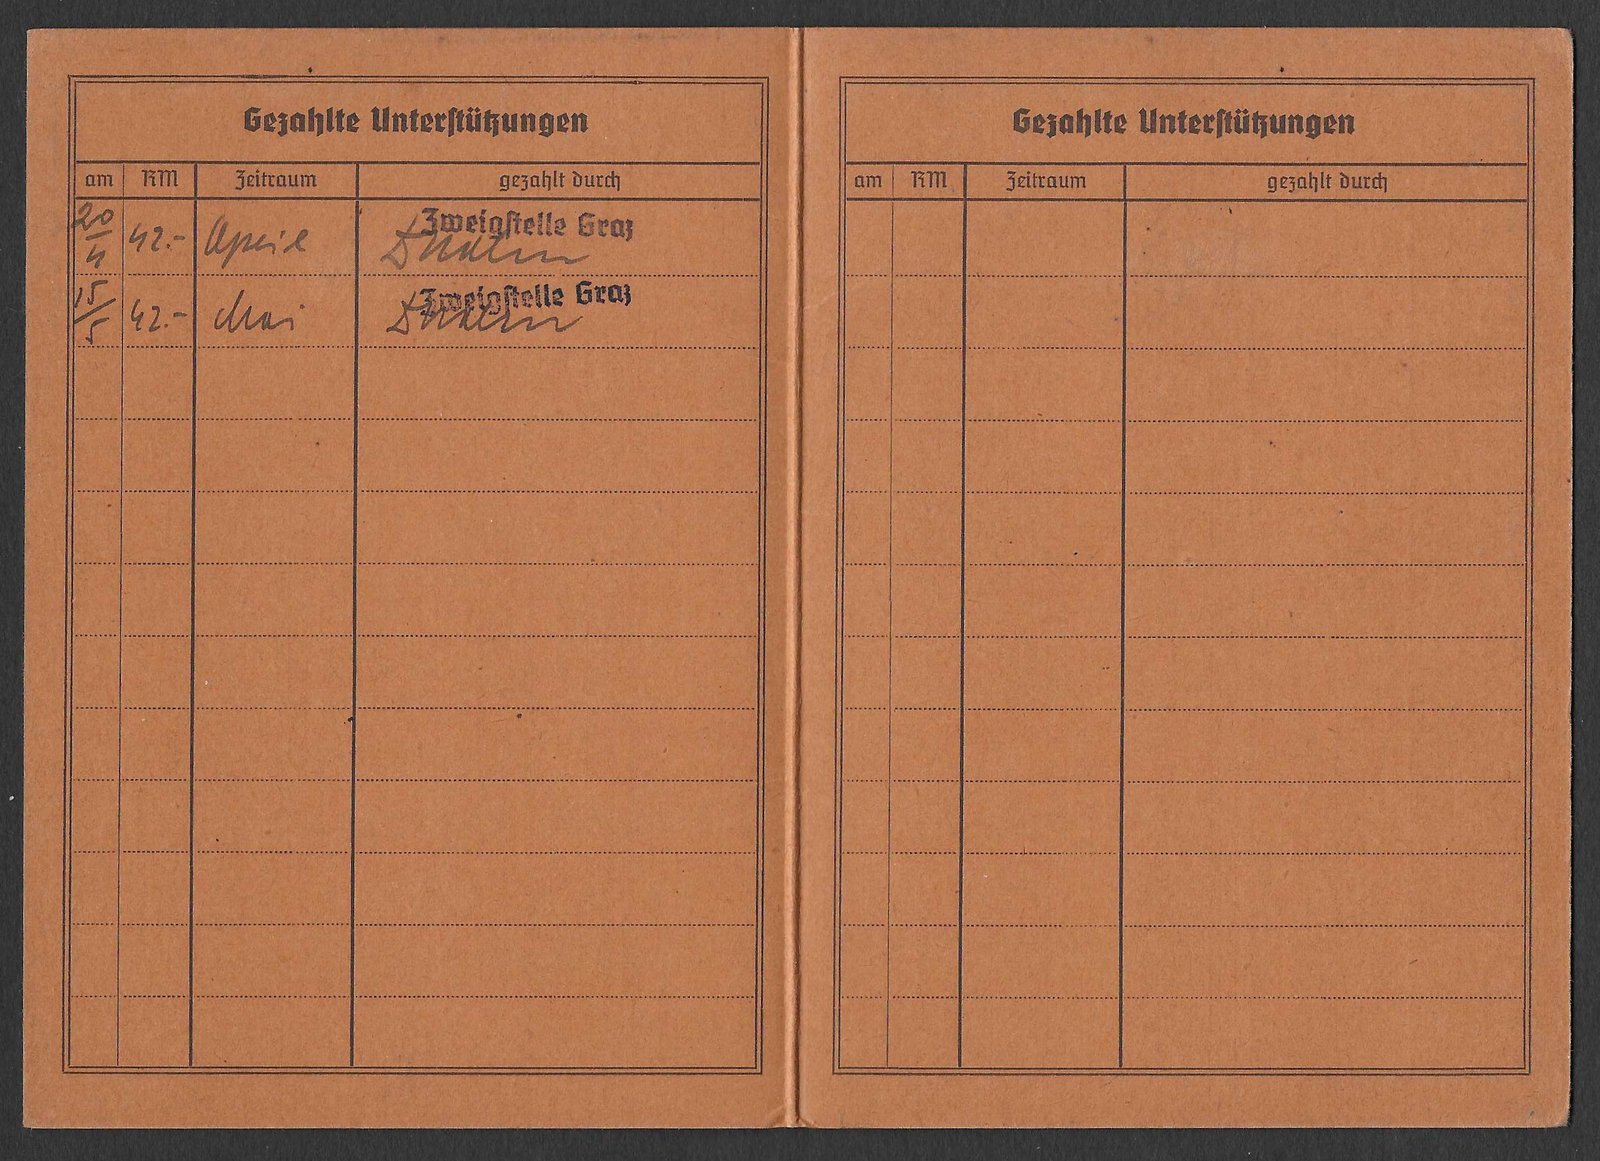 Gezahlte Unterstützungen
am RM Zeitraum gezahlt durch
20/4 42.- April Zweigstelle Graz
15/5 42.- Mai Zweigstelle Graz
Gezahlte Unterstützungen
am RM Zeitraum gezahlt durch